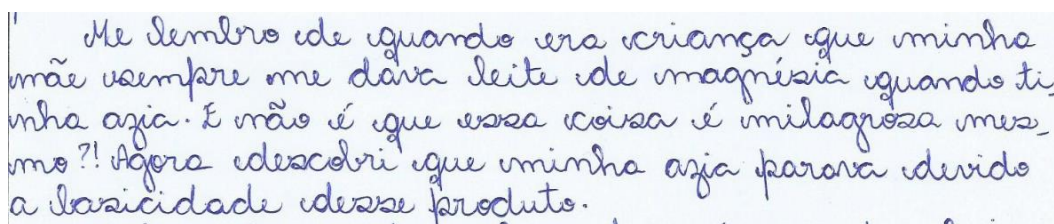 Me lembro de quando era criança que minha
mãe sempre me dava leite de magnésia quando ti_
nha azia. E não é que essa coisa é milagrosa mes_
mo?! Agora descobri que minha azia parava devido
a basicidade desse produto.